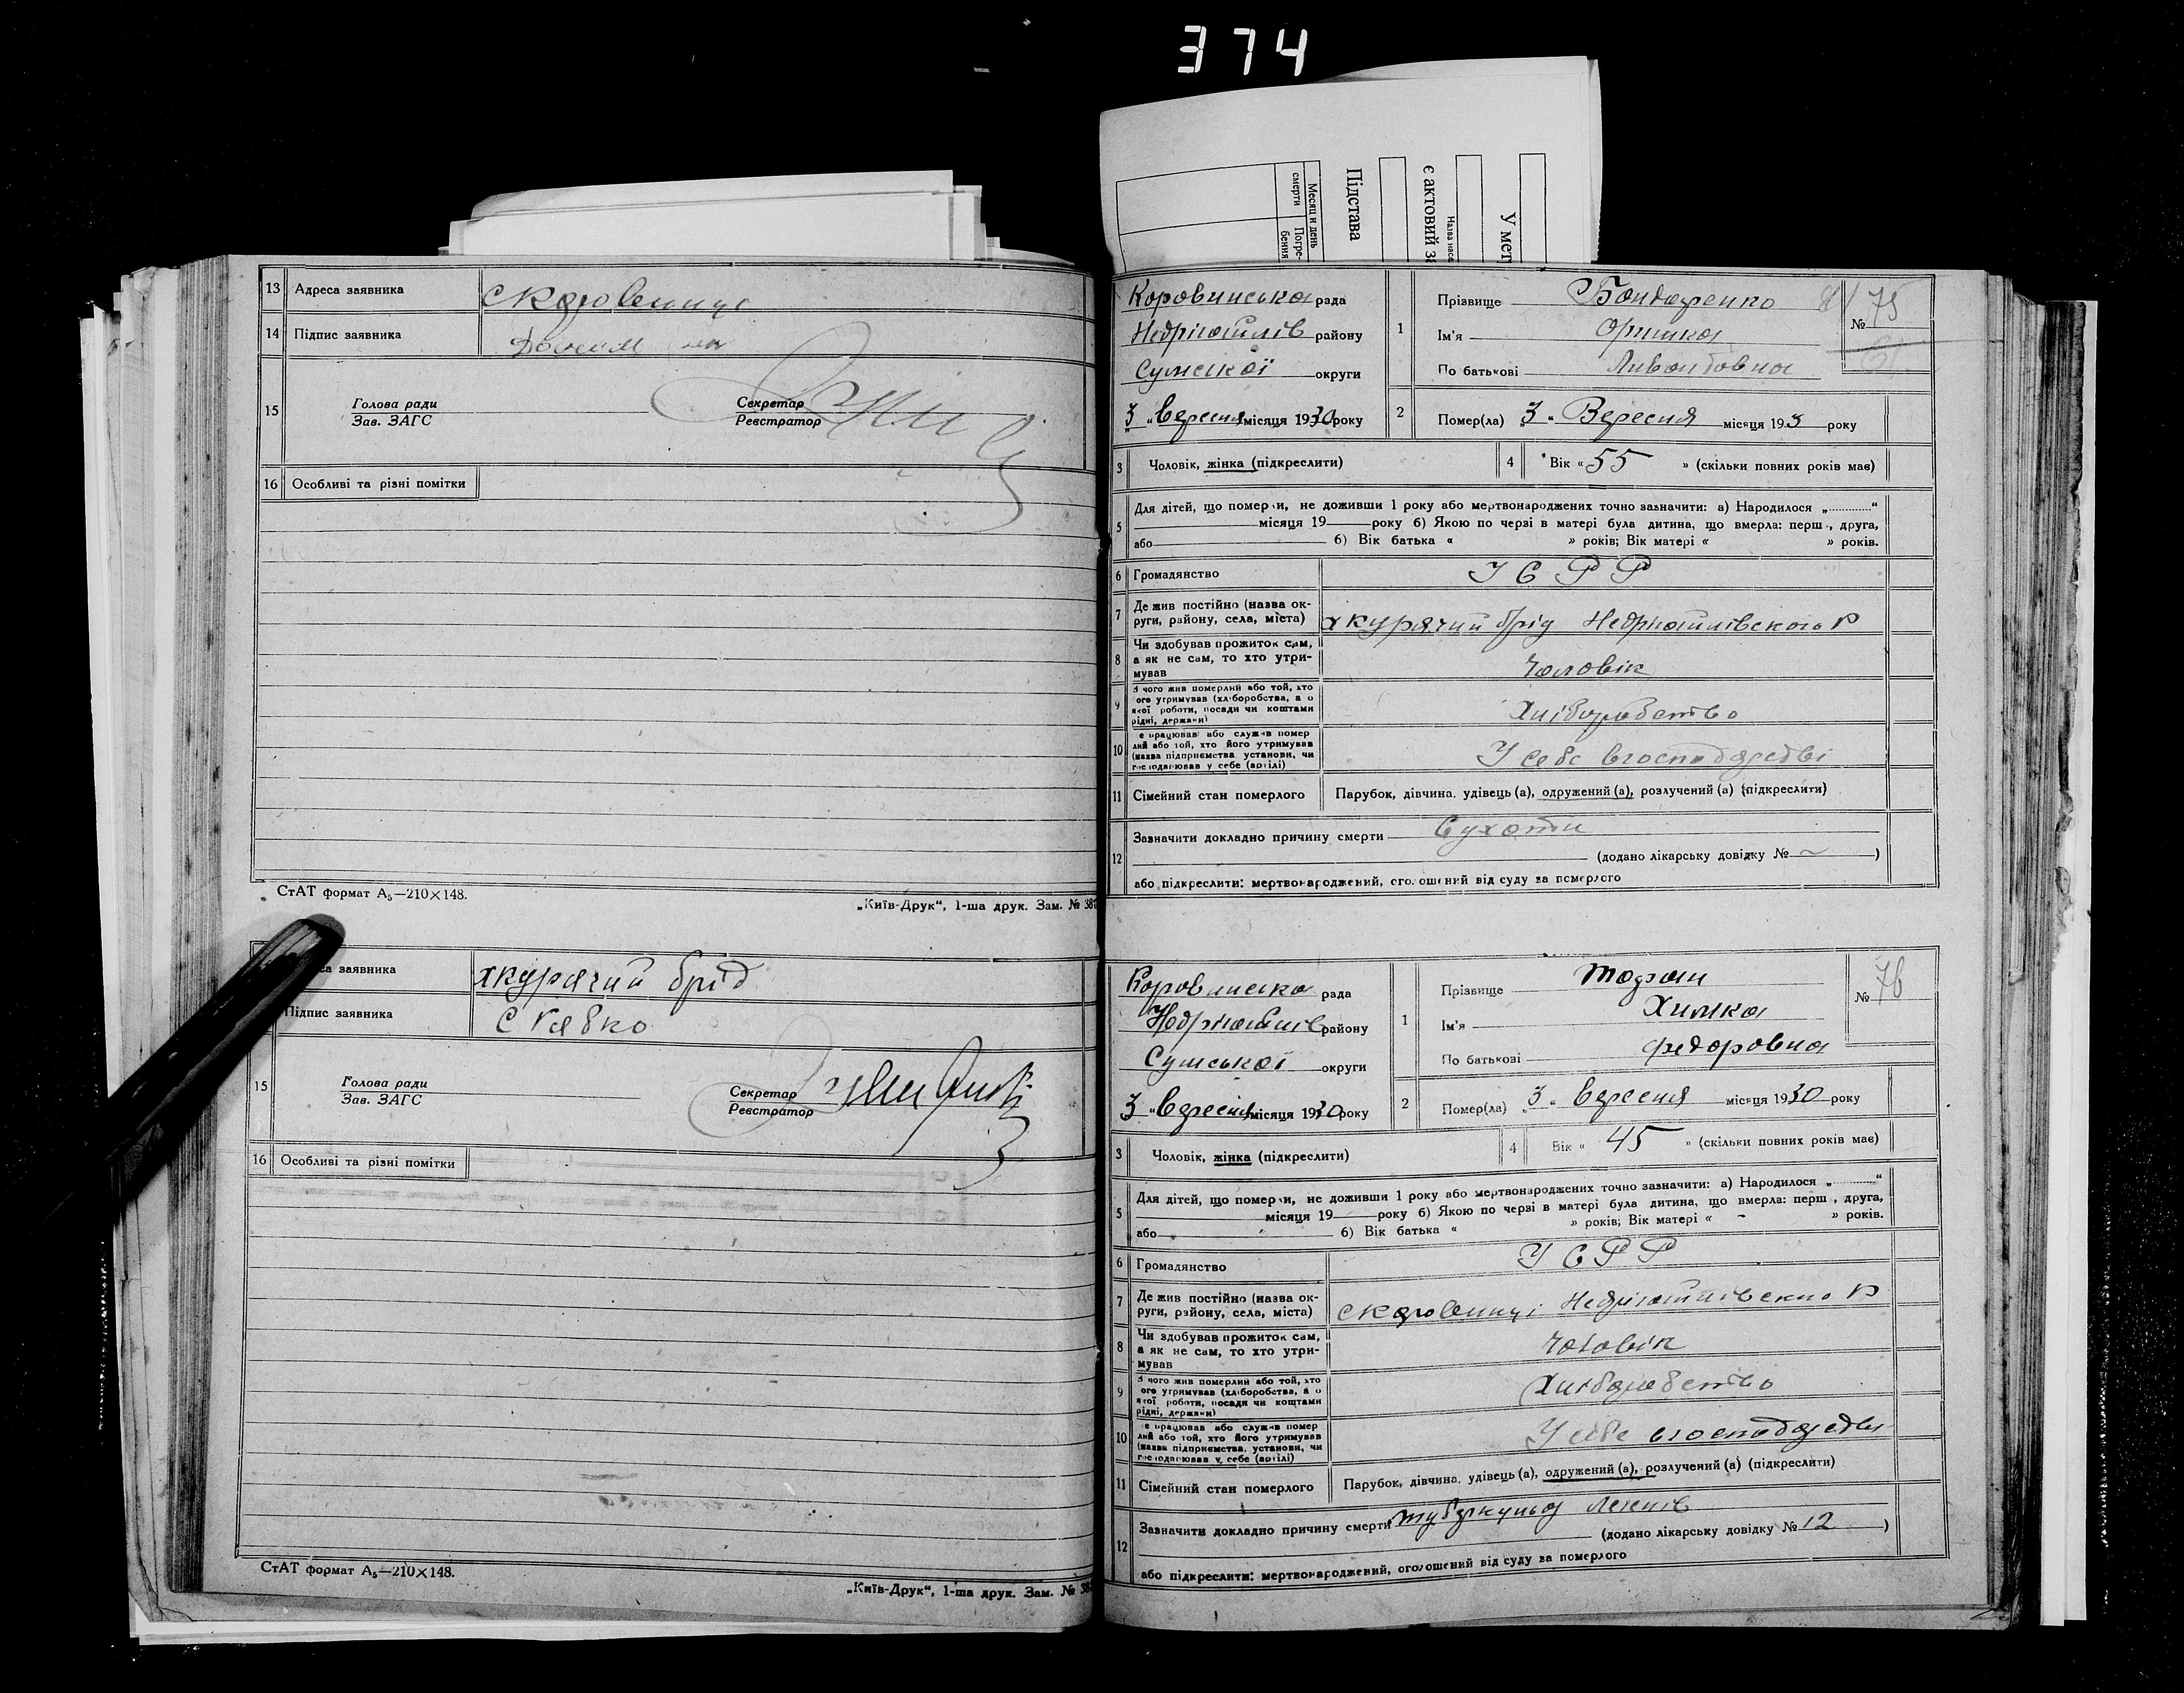 374
Месяц и день
смерти
Погре-
бения
Підстава
є актовий
У мет
13 Адреса заявника
14 Підпис заявника
15 Голова ради
Зав. ЗАГС
Секретар
Реєстратор
16 Особливі та різні помітки
СтАТ формат А₅—210×148.
„Київ-Друк“, 1-ша друк. Зам. № 381
заявника х курячий брід
Підпис заявника
15 Голова ради
Зав. ЗАГС
Секретар
Реєстратор
16 Особливі та різні помітки
СтАТ формат А₅—210×148.
„Київ-Друк“, 1-ша друк. Зам. № 38
Коровинська рада
Недригайлів району
Сумської округи
„3“ вересня місяця 1930 року
1 Прізвище Бондаренко
Ім'я Оришка
По батькові
№ 75
2 Помер(ла) „3“ Вересня місяця 193 року
3 Чоловік, жінка (підкреслити)
4 Вік «55» (скільки повних років має)
5 Для дітей, що померли, не доживши 1 року або мертвонароджених точно зазначити: а) Народилося „............“
місяця 19 року б) Якою по черзі в матері була дитина, що вмерла: перш , друга,
або 6) Вік батька « » років; Вік матері « » років.
6 Громадянство УСРР
7 Де жив постійно (назва ок-
руги, району, села, міста) х курячий брід Недригайлівского Р
8 Чи здобував прожиток сам,
а як не сам, то хто утри-
мував Чоловік
9 З чого жив померлий або той, хто
його утримував (хліборобства, а о
якої роботи, посади чи коштами
рідні, держави) Хліборобство
10 е працював або служив помер
лий або той, хто його утримував
(назва підприємства, установи, чи
господарював у себе (артілі) У себе вгосподарстві
11 Сімейний стан померлого Парубок, дівчина, удівець (а), одружений (а), розлучений (а) (підкреслити)
12 Зазначити докладно причину смерти Сухоти
(додано лікарську довідку № ~ )
або підкреслити: мертвонароджений, оголошений від суду за померлого
Коровинська рада
Недригайлів району
Сумської округи
„3“ вересня місяця 1930 року
1 Прізвище
Ім'я Химка
По батькові Федоровна
№ 76
2 Помер(ла) „3“ вересня місяця 1930 року
3 Чоловік, жінка (підкреслити)
4 Вік « 45 » (скільки повних років має)
5 Для дітей, що померли, не доживши 1 року або мертвонароджених точно зазначити: а) Народилося „............“
місяця 19 року б) Якою по черзі в матері була дитина, що вмерла: перш , друга,
або 6) Вік батька « » років; Вік матері « - » років.
6 Громадянство УСРР
7 Де жив постійно (назва ок-
руги, району, села, міста) с Коровинці Недригайлівского Р
8 Чи здобував прожиток сам,
а як не сам, то хто утри-
мував Чоловік
9 З чого жив померлий або той, хто
його утримував (хліборобства, а о
якої роботи, посади чи коштами
рідні, держави) Хліборобство
10 е працював або служив помер
лий або той, хто його утримував
(назва підприємства, установи, чи
господарював у себе (артілі) У себе вгосподарстві
11 Сімейний стан померлого Парубок, дівчина, удівець (а), одружений (а), розлучений (а) (підкреслити)
12 Зазначити докладно причину смерти туберкульоз легенів
(додано лікарську довідку № 12 )
або підкреслити: мертвонароджений, оголошений від суду за померлого